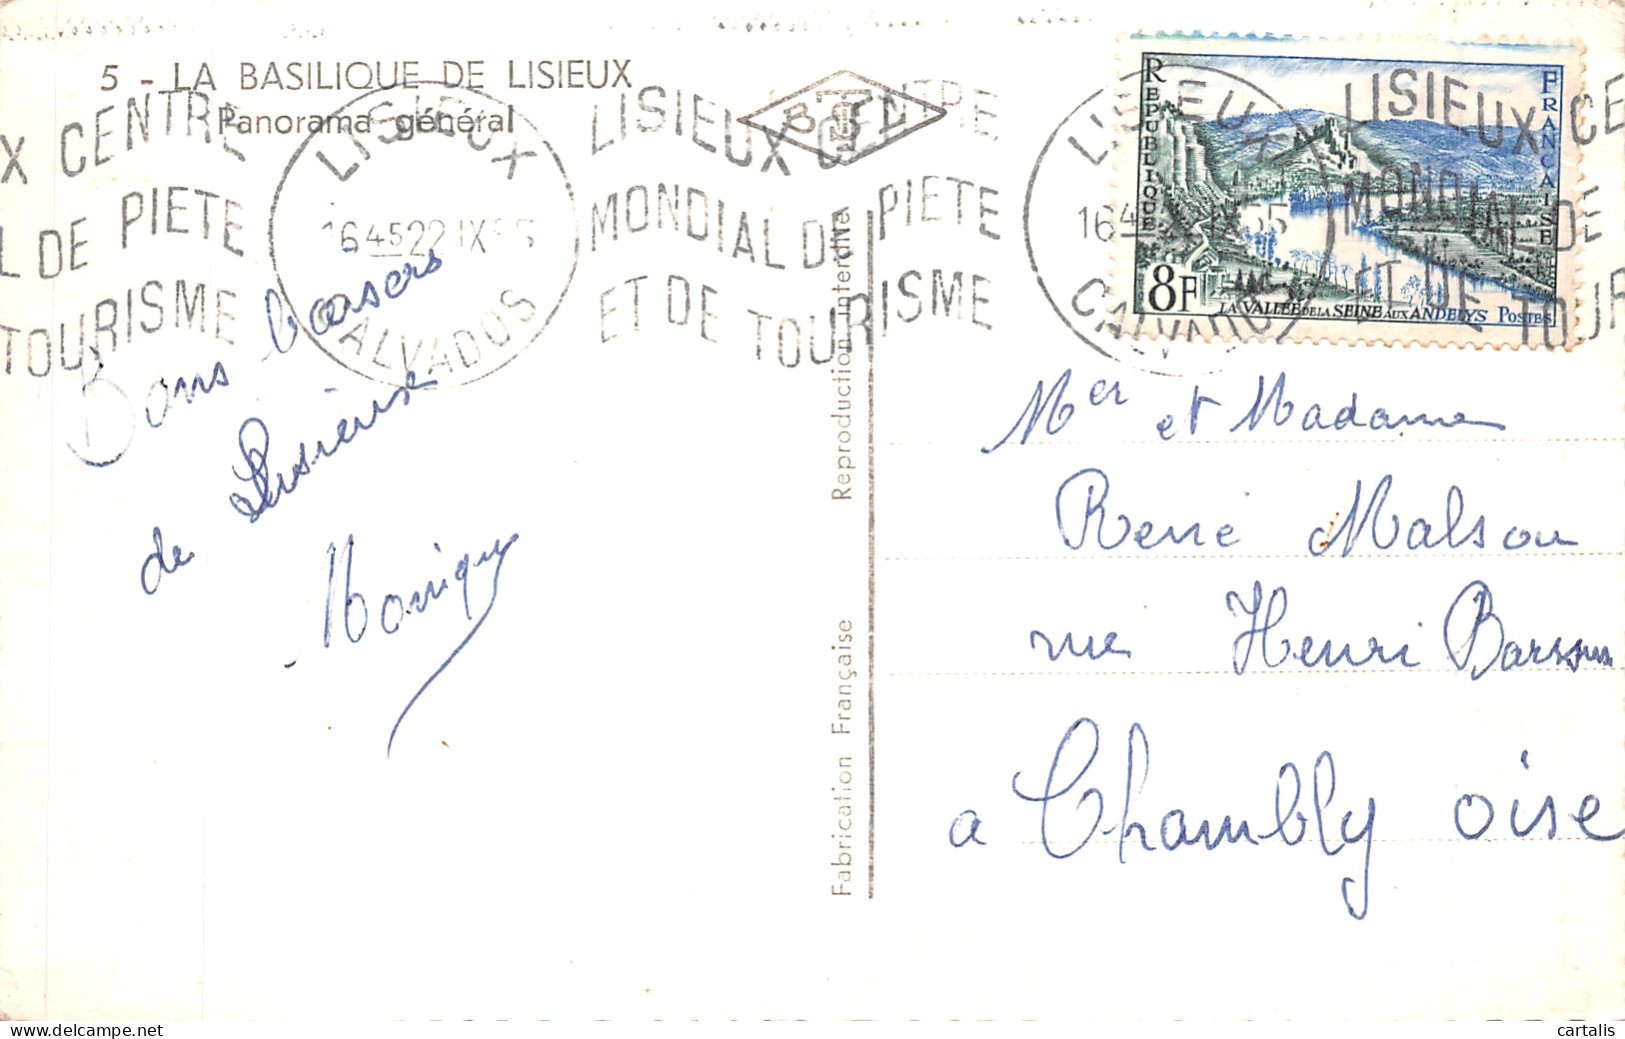 5 - LA BASILIQUE DE LISIEUX
Panorama général
X CENTRE
L DE PIETE
TOURISME
LISIEUX
16 45 22 IX
CALVADOS
LISIEUX CENTRE
MONDIAL DE PIETE
ET DE TOURISME
LISIEUX
16 45
CALVADOS
LISIEUX CE
MONDIAL DE
ET DE TOUR
REPUBLIQUE
FRANCAISE
8F
LA VALLÉE DE LA SEINE AUX ANDELYS POSTES
Bons baisers
de Lisieux
Monique
Fabrication Française
Reproduction interdite
Mer et Madame
René Malsou
rue Henri
a Chambly oise
cartalis